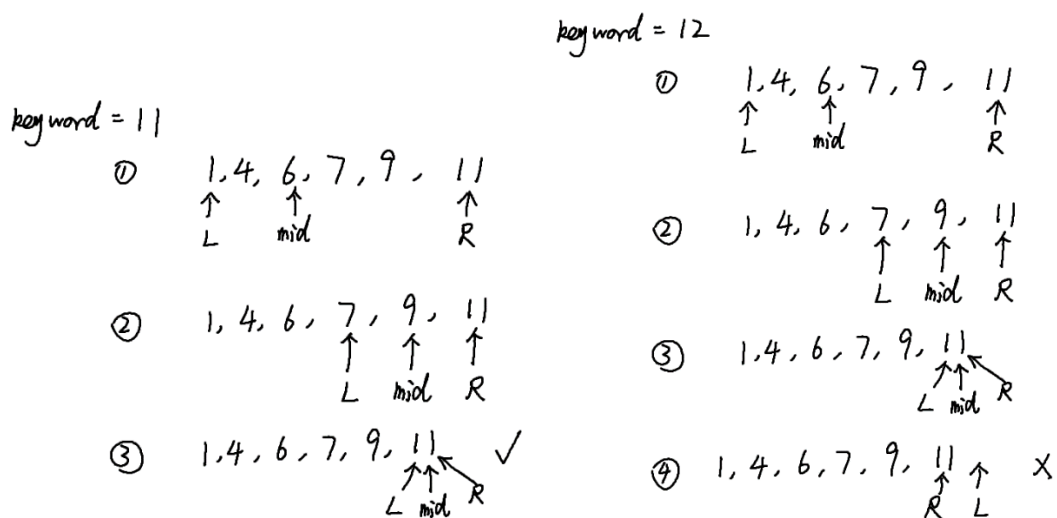 keyword = 11
① 1, 4, 6, 7, 9, 11
L mid R
② 1, 4, 6, 7, 9, 11
L mid R
③ 1, 4, 6, 7, 9, 11 ✓
L mid R
keyword = 12
① 1, 4, 6, 7, 9, 11
L mid R
② 1, 4, 6, 7, 9, 11
L mid R
③ 1, 4, 6, 7, 9, 11
L mid R
④ 1, 4, 6, 7, 9, 11 X
R L